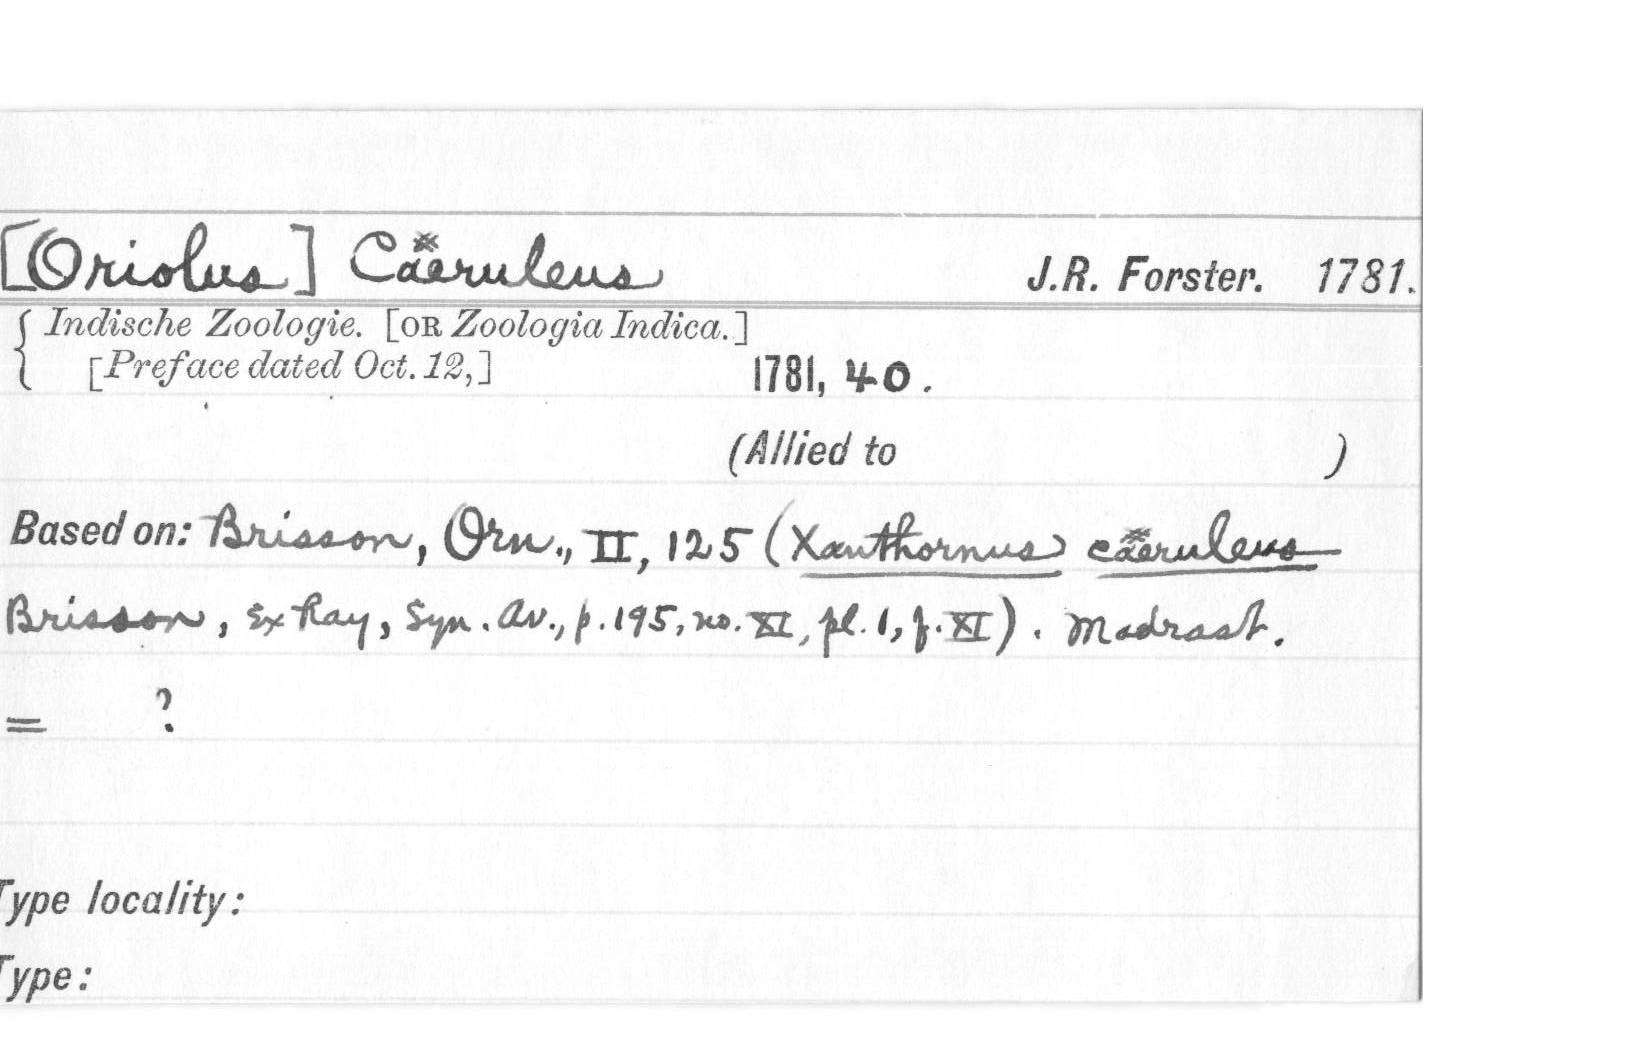 [Oriolus] Cæruleus J.R. Forster. 1781.
{ Indische Zoologie. [OR Zoologia Indica.]
[Preface dated Oct. 12,] 1781, 40.
(Allied to )
Based on: Brisson, Orn., II, 125 (Xanthornus cæruleus
Brisson, ex Ray, Syn. Av., p. 195, no. XI, pl. 1, f. XI). Madrast.
= ?
Type locality:
Type: